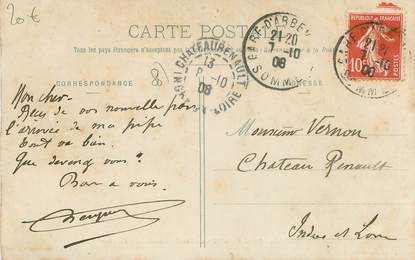 20€
CARTE POSTALE
Tous les pays étrangers n'acceptent pas
CORRESPONDANCE
ADRESSE
CHATEAURENAULT
13
10
08
LOIRE
GARE D'ABBEV
21 20
7 -10
08
SOMME
10
Mon cher
Reçu de vos nouvelles par
l'arrivée de ma pipe
tout va bien.
Que devenez vous ?
Bien a vous.
Monsieur Vernon
Chateau Renault
Indre et Loire